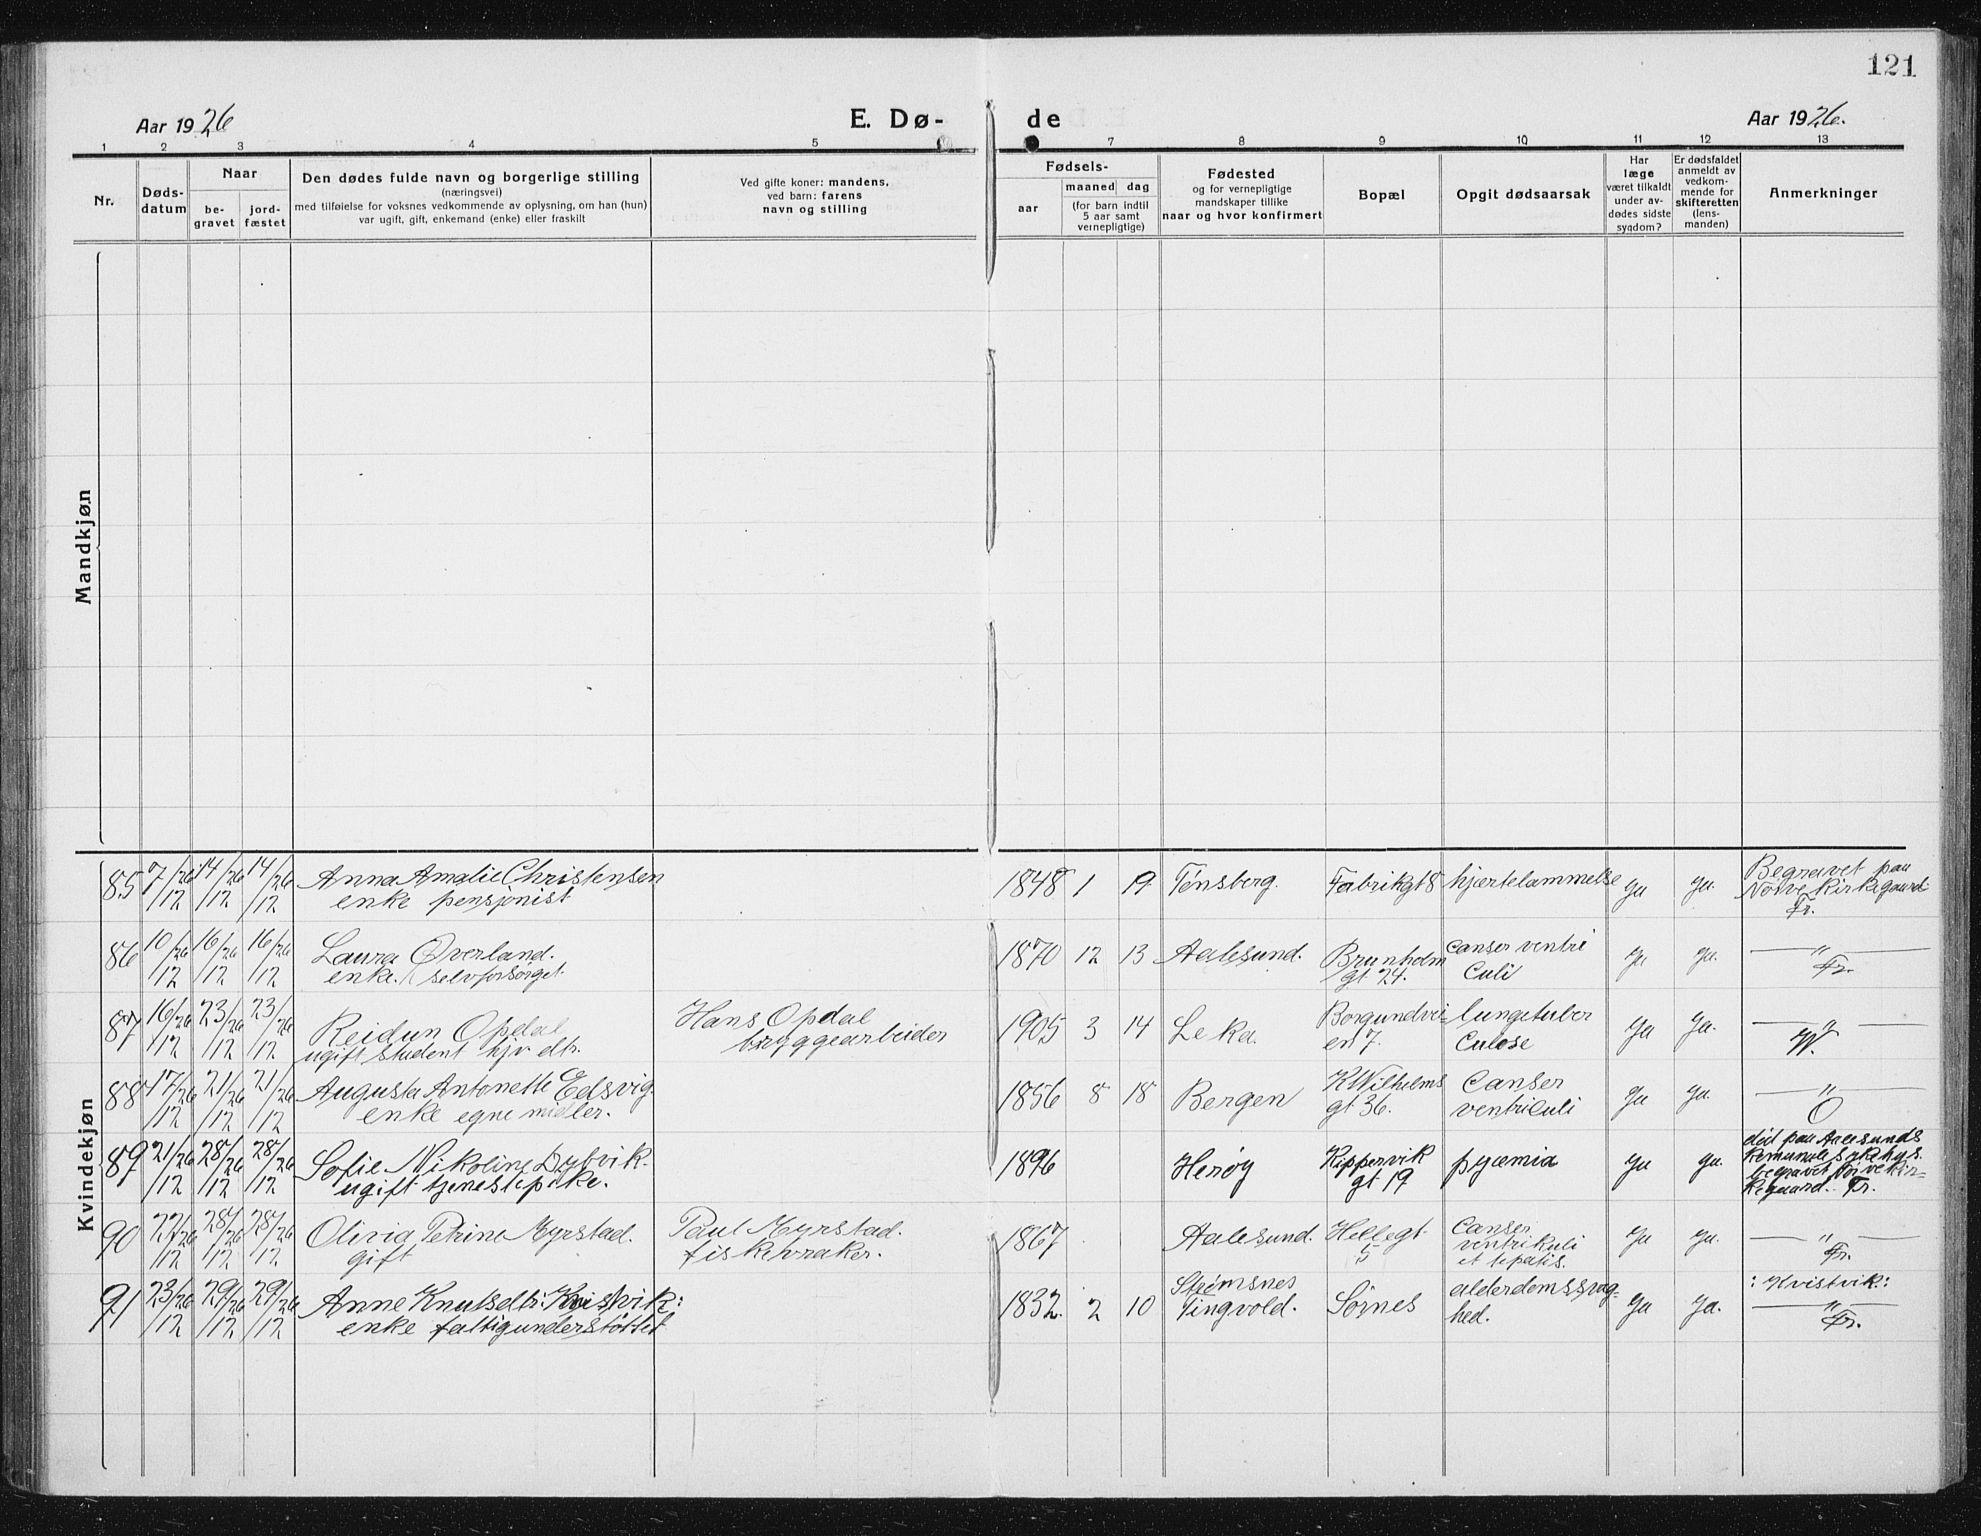 121
Aar 1926
E. Dø-
de
Aar 1926.
1 2 3 4 5 7 8 9 10 11 12 13
Nr.
Døds-
datum
Naar
be-
gravet
jord-
fæstet
Den dødes fulde navn og borgerlige stilling
(næringsvei)
med tilføielse for voksnes vedkommende av oplysning, om han (hun)
var ugift, gift, enkemand (enke) eller fraskilt
Ved gifte koner: mandens,
ved barn: farens
navn og stilling
Fødsels-
aar
maaned dag
(for barn indtil
5 aar samt
vernepligtige)
Fødested
og for vernepligtige
mandskaper tillike
naar og hvor konfirmert
Bopæl
Opgit dødsaarsak
Har
læge
været tilkaldt
under av-
dødes sidste
sygdom?
Er dødsfaldet
anmeldt av
vedkom-
mende for
skifteretten
(lens-
manden)
Anmerkninger
Mandkjøn
Kvindekjøn
85 7/12 26 14/12 26 14/12 26 Anna Amalie Christensen
enke pensjonist
1848 1 19 Tønsberg. Fabrikgt 8 hjertelammelse ja ja.
Begravet paa
Nørve kirkegaard
Fr.
86 10/12 26 16/12 26 16/12 26 Laura Øverland.
enke. selvforsørget.
1870 12 13 Aalesund. Brunholm
gt 24.
Canser ventri
culi
ja ja. — " —
Fr.
87 16/12 26 23/12 26 23/12 26 Reidun Opdal
ugift student hjv. dtr.
Hans Opdal
bryggearbeider
1905 3 14 Leka. Borgundvei-
en 7.
lungetuber
culose
ja ja. — " —
W.
88 17/12 26 21/12 26 21/12 26 Augusta Antonette Edsvig.
enke egne midler.
1856 8 18 Bergen K Wilhelms
gt 36.
Canser
ventriculi
ja ja. — " —
O
89 21/12 26 28/12 26 28/12 26 Sofie Nikoline Dybvik.
ugift tjenestepike.
1896 Herøy Kippervik
gt 19
pyæmia ja ja.
død paa Aalesunds
komunale sykehus.
begravet Nørve kir-
kegaard. Fr.
90 22/12 26 28/12 26 28/12 26 Olivia Petrine Myrstad.
gift
Paul Myrstad.
fiskevraker.
1867 Aalesund. Hellegt.
5
Canser
ventrikuli
et hepatis.
ja ja. — " —
Fr.
91 23/12 26 29/12 26 29/12 26 Anne Knutsdtr: Kvistvik:
enke fattigunderstøttet
1832. 2 10
Tingvold. Sørnes alderdomssvag-
hed.
ja ja. : Kvistvik:
— " —
Fr.